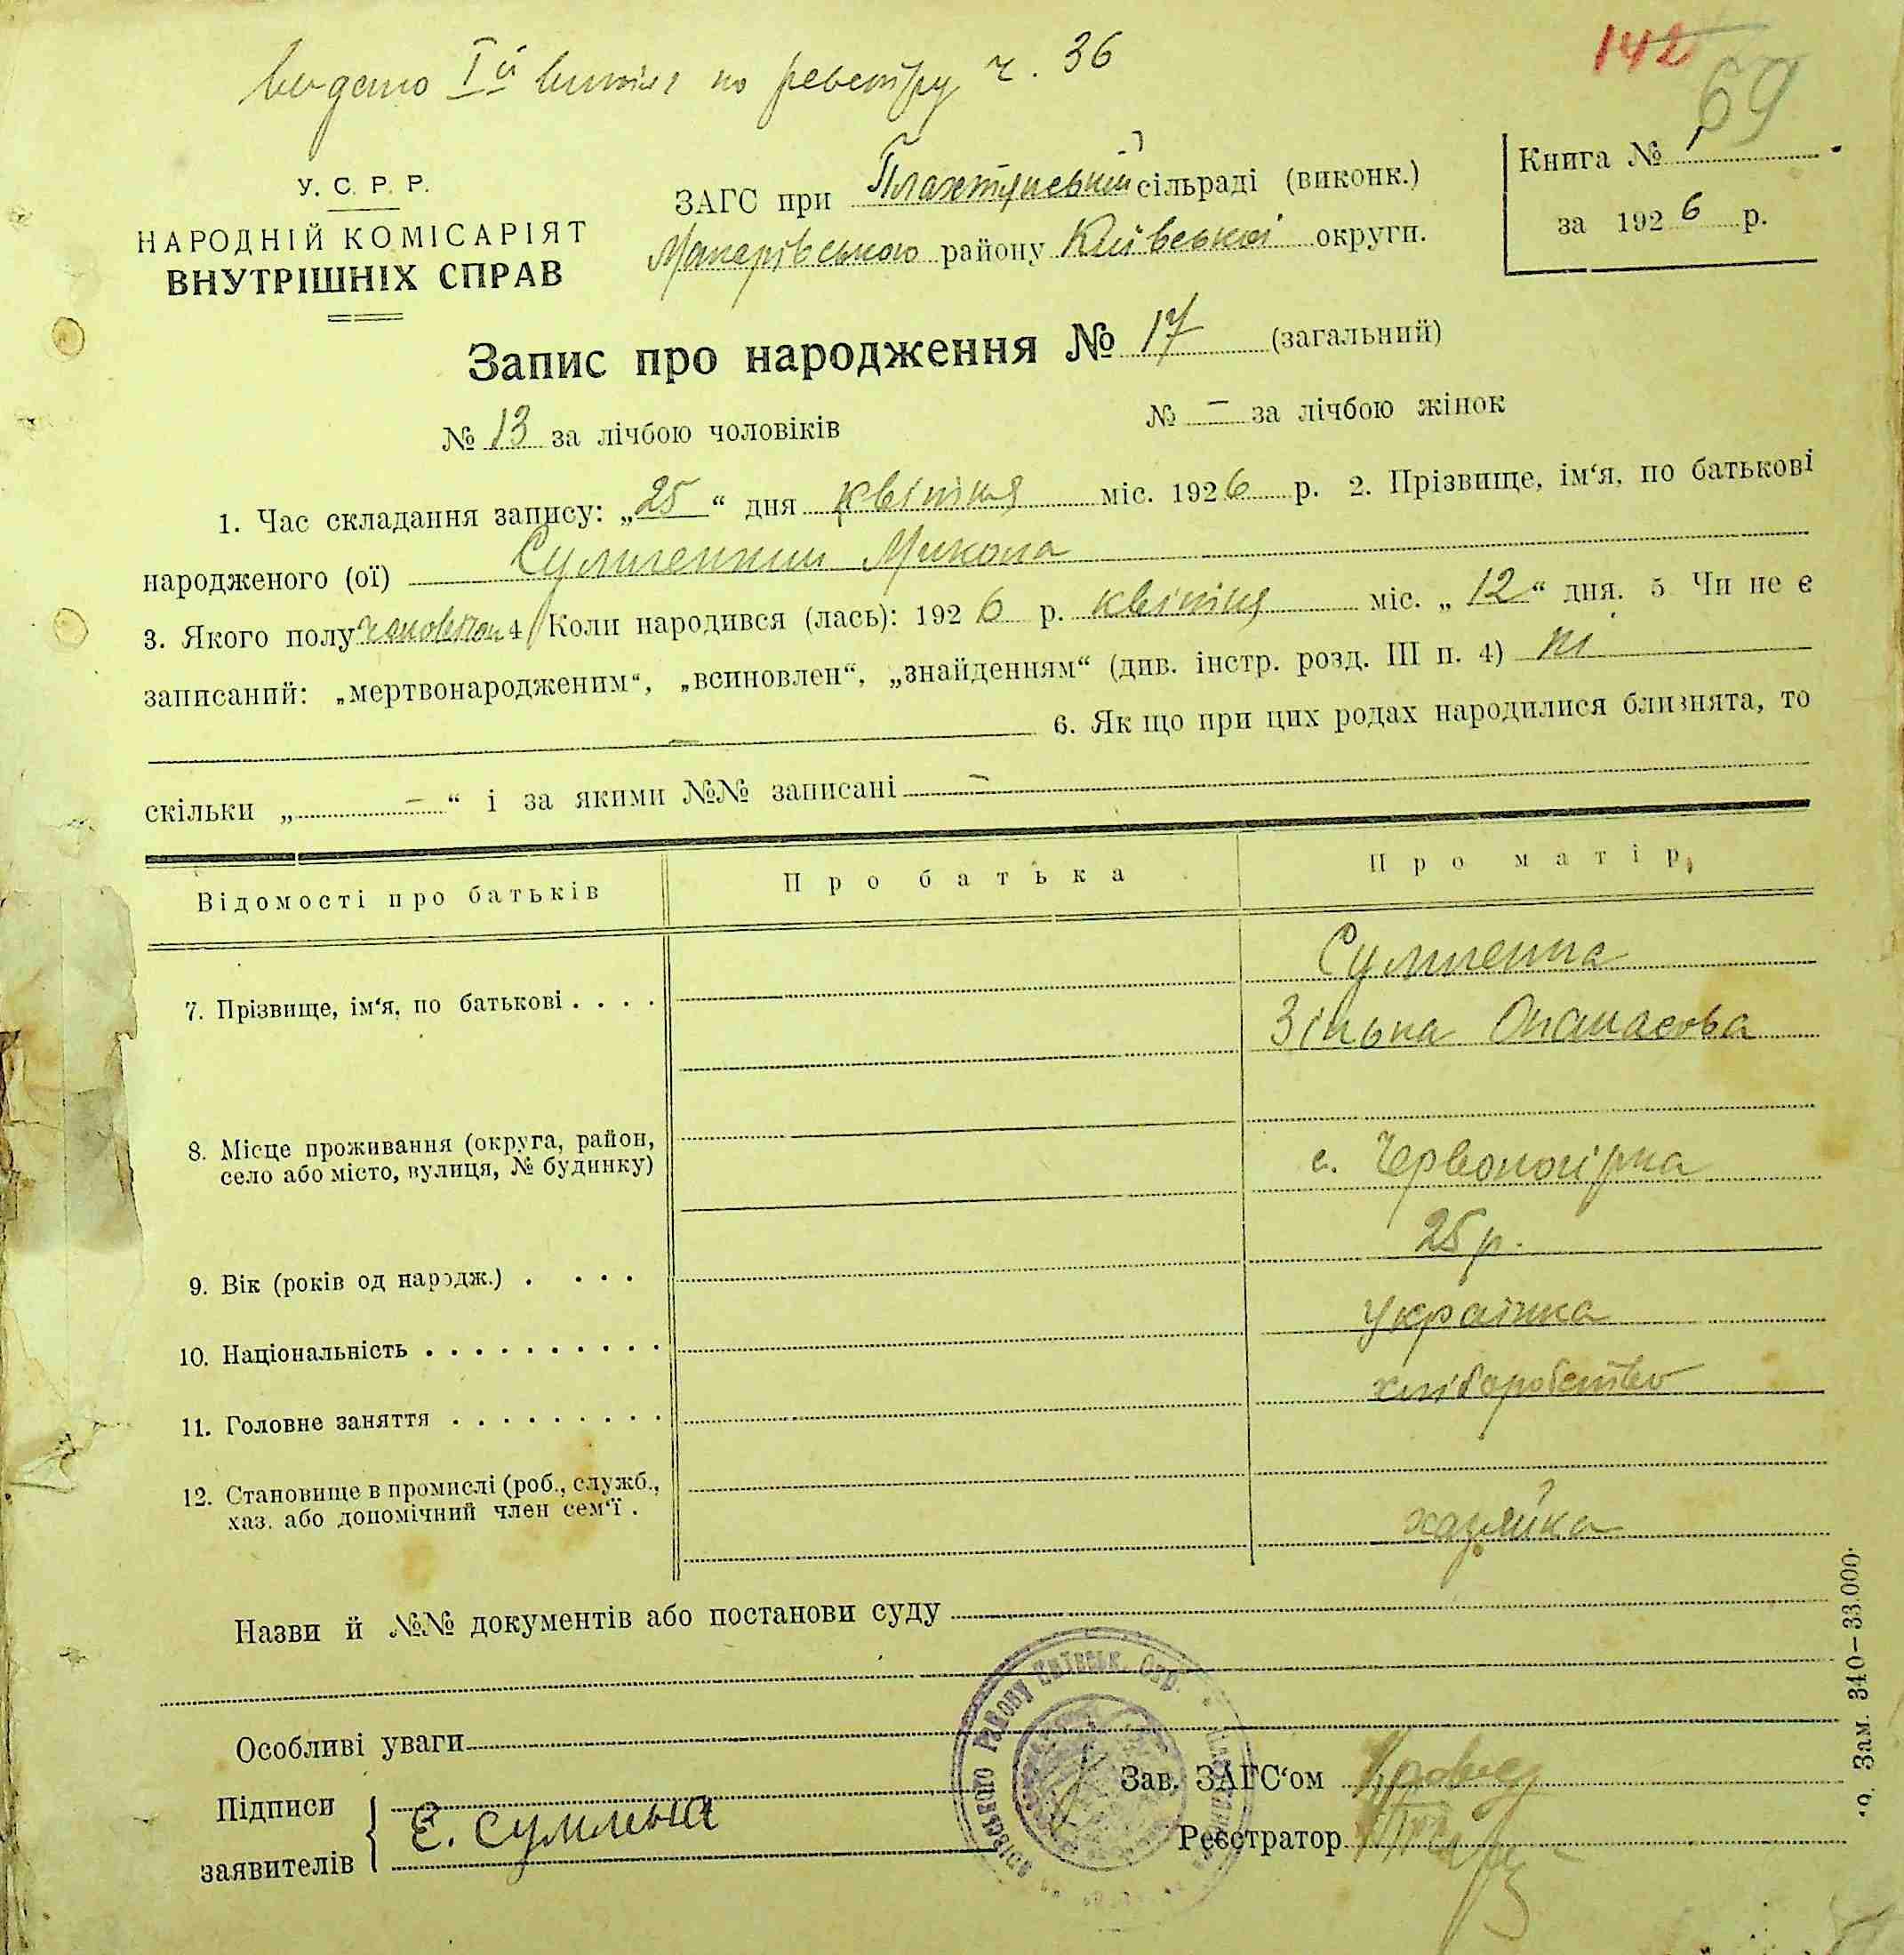 видано І-ий витяг по реєстру ч. 36
142
69
У. С. Р. Р.
НАРОДНІЙ КОМІСАРІЯТ
ВНУТРІШНІХ СПРАВ
ЗАГС при Плахтянській сільраді (виконк.)
Макарівського району Київської округи.
Книга № 1
за 1926 р.
Запис про народження № 17 (загальний)
№ 13 за лічбою чоловіків № – за лічбою жінок
1. Час складання запису: „25“ дня квітня міс. 1926 р. 2. Прізвище, ім‘я, по батькові
народженого (ої) Микола
3. Якого полу 4 Коли народився (лась): 1926 р. квітня міс. „12“ дня. 5 Чи не є
записаний: „мертвонародженим“, „всиновлен“, „знайденням“ (див. інстр. розд. III п. 4) ні
– 6. Як що при цих родах народилися близнята, то
скільки „ – “ і за якими №№ записані –
Відомості про батьків Про батька Про матір
7. Прізвище, ім‘я, по батькові . . . .
Зінька Опанасова
8. Місце проживання (округа, район,
село або місто, вулиця, № будинку)
с. Червоногірка
9. Вік (років од народж.) . . . . 25 р.
10. Національність . . . . . . . . . . Українка
11. Головне заняття . . . . . . . . . хліборобство
12. Становище в промислі (роб., служб.,
хаз. або допомічний член сем‘ї . хазяйка
Назви й №№ документів або постанови суду
Особливі уваги
Підписи
заявителів
Зав. ЗАГС‘ом
Реєстратор
Зам. 340—33.000.